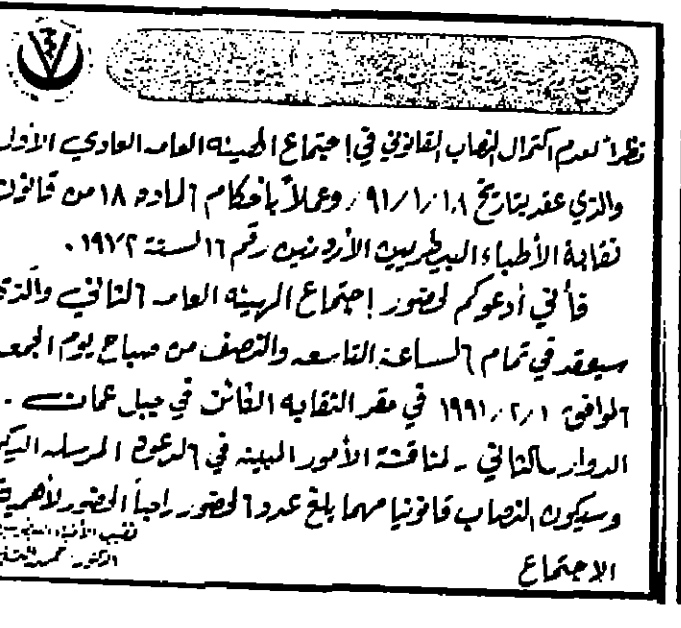 نظراً لعدم اكتمال النصاب القانوني في إجتماع الهيئه العامه العادي الأول
والذي عقد بتاريخ ٩١/١/١٨ وعملاً بأحكام الماده ١٨ من قانون
نقابة الأطباء البيطريين الأردنيين رقم ١٦ لسنة ١٩٧٢ .
فأني أدعوكم لحضور إجتماع الهيئه العامه الثاني والذي
سيعقد في تمام الساعة التاسعه والنصف من صباح يوم الجمعه
الموافق ١٩٩١/٢/١ في مقر النقابه الكائن في جبل عمان -
الدوار الثاني - لمناقشة الأمور المبينه في الدعوه المرسله اليكم
وسيكون النصاب قانونيا مهما بلغ عدد الحضور راجياً الحضور لأهمية
الاجتماع
نقيب الأطباء البيطريين
الدكتور محمد